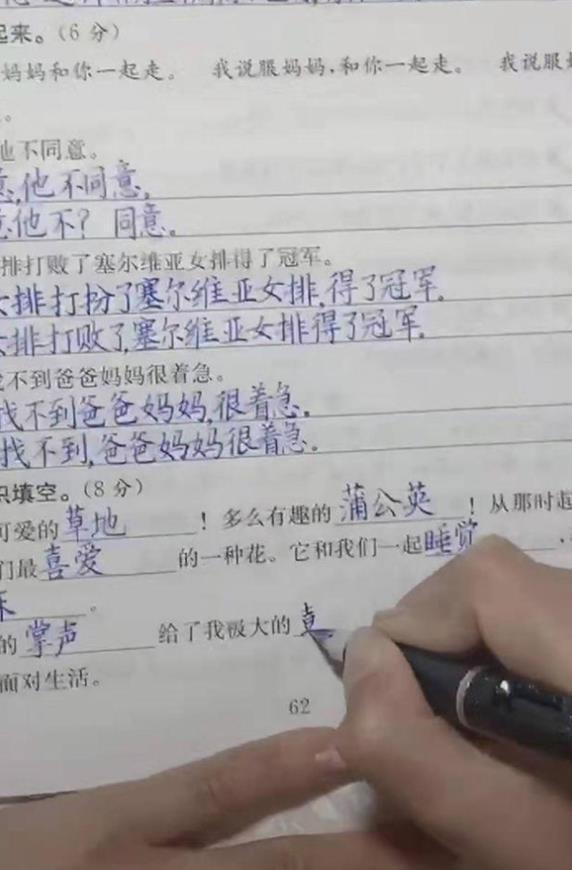 起来。(6 分)
妈妈和你一起走。 我说服妈妈,和你一起走。 我说服妈
。
他不同意。
意,他不同意,
意:他不? 同意。
排打败了塞尔维亚女排得了冠军。
女排打扮了塞尔维亚女排,得了冠军.
女排打败了,塞尔维亚女排得了冠军.
找不到爸爸妈妈很着急。
找不到爸爸妈妈,很着急.
找不到,爸爸妈妈很着急.
识填空。(8 分)
可爱的草地! 多么有趣的蒲公英! 从那时起
们最喜爱的一种花。它和我们一起睡觉,
。
的掌声给了我极大的
面对生活。
62